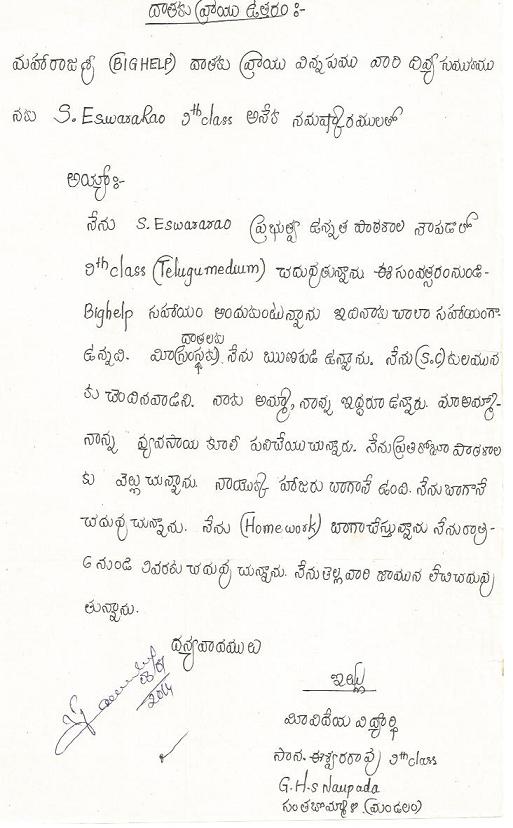 దాతకు వ్రాయు ఉత్తరం :-
మహారాజశ్రీ (BIGHELP) దాతకు వ్రాయు విన్నపము వారి దివ్య సముఖము
నకు S. EswaraRao 9th class అనేక నమష్కారములతో
అయ్యా :-
నేను S. Eswararao ప్రభుత్వ ఉన్నత పాఠశాల నౌపడలో
9th class (Telugu medium) చదువుతున్నాను ఈ సంవత్సరం నుండి-
Bighelp సహాయం అందుకుంటున్నాను ఇది నాకు చాలా సహాయంగా
దాతలకు
ఉన్నది. మీ (సంస్థకు) నేను ఋణపడి ఉన్నాను. నేను (S.C) కులమున
కు చెందినవాడిని. నాకు అమ్మా, నాన్న ఇద్దరూ ఉన్నారు. మా అమ్మా-
నాన్న వ్యవసాయ కూలీ పనిచేయుచున్నారు. నేను ప్రతిరోజూ పాఠశాల
కు వెల్లుచున్నాను. నాయొక్క హాజరు బాగానే ఉంది. నేను బాగానే
చదువుచున్నాను. నేను (Home work) బాగా చేస్తున్నాను నేను రాత్రి-
6 నుండి 9 వరకు చదువుచున్నాను. నేను తెల్లవారి జామున లేచి చదువు
తున్నాను.
ధన్యవాదములు
ఇట్లు
మీ విదేయ విద్యార్థి
సాన. ఈశ్వరరావు 9th class
G.H.S Naupada
సంతబొమ్మాళి (మండలం)
2014